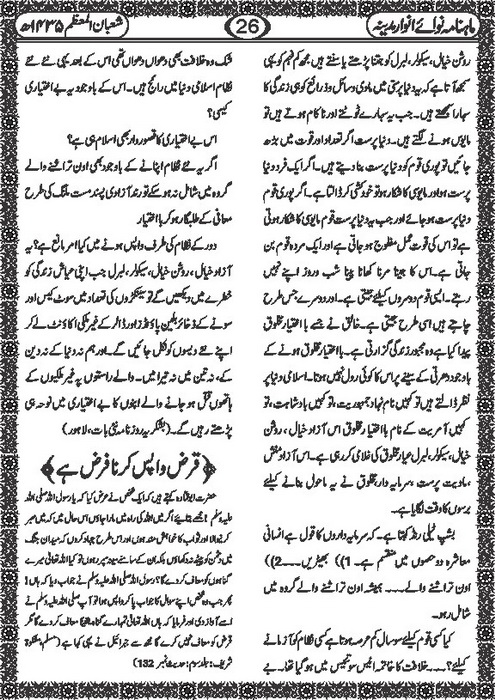 ماہنامہ نوائے انوار مدینہ
26
شعبان المعظم ۱۴۳۵ھ
روشن خیال، سیکولر، لبرل کو جتنا پڑھتے پاسکتے ہیں، مجھ کو تم کو یہی
سمجھ آتا ہے کہ یہ دنیا پرستی میں مادی وسائل و ذرائع کو ہی زندگی کا
سہارا سمجھتے ہیں۔ جب یہ سہارے ٹوٹتے اور ناکام ہوتے ہیں تو
مایوس ہونے لگتے ہیں۔ دنیا پرست اگر تعداد اور قوت میں بڑھ
جائیں تو پوری قوم کو دنیا پرست بنا دیتے ہیں۔ اگر ایک فرد دنیا
پرست ہو اور مایوسی کا شکار ہو تو خودکشی کر ڈالتا ہے۔ اگر پوری قوم
دنیا پرست ہو جائے اور جب یہ دنیا پرست قوم مایوسی کا شکار ہوتی
ہے تو اس کی قوت عمل مفلوج ہو جاتی ہے اور ایک مردہ قوم بن
جاتی ہے۔ اس کا جینا مرنا کھانا پینا شب و روز اپنے نہیں
رہتے۔ ایسی قوم دوسروں کیلئے جیتی ہے۔ اور دوسرے جس طرح
چاہتے ہیں اسی طرح جیتی ہے۔ خالق نے جسے با اختیار مخلوق
پیدا کیا ہے وہ مجبور زندگی گزارتی ہے۔ با اختیار مخلوق ہونے کے
باوجود دھرتی کے سینے پر اس کا کوئی رول نہیں ہوتا۔ اسلامی دنیا پر
نظر ڈالتے ہیں تو کہیں نام نہاد جمہوریت، تو کہیں بادشاہت، تو
کہیں آمریت کے نام با اختیار مخلوق اس آزاد خیال، روشن
خیال، سیکولر، لبرل عیار مخلوق کی غلامی کر رہی ہے۔ اس آزاد منش،
مادیت پرست، سرمایہ دار مخلوق نے یہ ماحول بنانے کیلئے
برسوں کا وقت لگایا ہے۔
بشپ ٹیلی رینڈ کہتا ہے۔ کہ سرمایہ داروں کا قول ہے انسانی
معاشرہ دو حصوں میں منقسم ہے۔ 1)) بھیڑیں... 2))
اون تراشنے والے.... ہمیشہ اون تراشنے والے گروہ میں
شامل رہو۔
کیا کسی قوم کیلئے سو سال کم عرصہ ہوتا ہے کسی نظام کو آزمانے
کیلئے؟... خلافت کا خاتمہ انیس سو تئیس میں ہو گیا تھا۔ بے
شک وہ خلافت بھی دھواں دھواں تھی اس کے بعد یہی نئے نئے
نظام اسلامی دنیا میں رائج ہیں۔ اس کے باوجود یہ بے اختیاری
کیسی؟
اس بے اختیاری کا قصور وار بھی اسلام ہی ہے؟
اگر یہ نئے نظام اپنانے کے باوجود بھی اون تراشنے والے
گروہ میں شامل نہ ہو سکے تو رند آزادی پسند مست ملنگ کی طرح
معافی کے طلبگار ہو کر با اختیار
دور کے نظام کی طرف واپس ہونے میں کیا امر مانع ہے؟ یہ
آزاد خیال، روشن خیال، سیکولر، لبرل جب اپنی عیاش زندگی کو
خطرے میں دیکھیں گے تو سینکڑوں کی تعداد میں سوٹ کیس اور
سونے کے ذخائر بلین پاؤنڈز اور ڈالر کے غیر ملکی اکاؤنٹ لے کر
اپنے نئے دیسوں کو نکل جائیں گے۔ اور ہم نہ دنیا کے نہ دین
کے، نہ تین میں نہ تیرا میں۔ والے راستوں پہ غیر ملکیوں کے
ہاتھوں قتل ہو جانے والے اپنوں کا بے اختیاری میں نوحہ ہی
پڑھتے رہیں گے۔ (بشکریہ روزنامہ نئی بات، لاہور)
﴿قرض واپس کرنا فرض ہے﴾
حضرت ابوقتادہ کہتے ہیں کہ ایک شخص نے عرض کیا کہ یارسول اللہ صلی اللہ
علیہ وسلم! مجھے بتائیے اگر میں اللہ کی راہ میں مارا جاؤں اس حال میں کہ میں صبر
کرنے والا اور ثواب کا خواہش مند ہوں اور اس طرح جہاد کروں کہ میدان جنگ
میں دشمن کو پیٹھ نہ دکھاؤں بلکہ ان کے سامنے سینہ سپر ہوں تو کیا اللہ تعالیٰ میرے
گناہوں کو معاف کر دے گا؟ رسول اللہ صلی اللہ علیہ وسلم نے جواب دیا کہ ہاں!
پھر جب وہ شخص اپنے سوال کا جواب پا کر واپس ہوا تو آپ صلی اللہ علیہ وسلم نے
اسے آواز دی اور فرمایا کہ ہاں اللہ تعالیٰ تمہارے گناہ یقیناً معاف کر دے گا مگر
قرض کو معاف نہیں کرے گا مجھ سے جبرائیل نے یہی کہا ہے (مسلم، مشکوٰۃ
شریف: جلد سوم: حدیث نمبر 132)